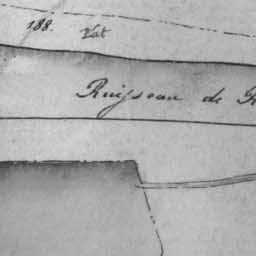 188. Vat
Ruisseau de R